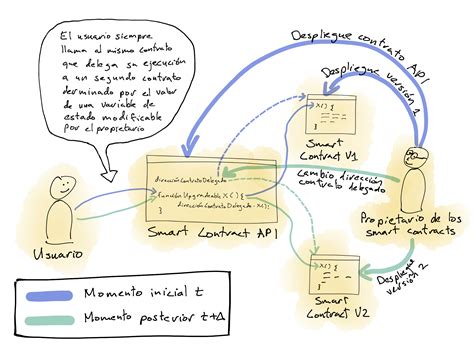 El usuario siempre
llama al mismo contrato
que delega su ejecución
a un segundo contrato
derminado por el valor
de una variable de
estado modificable
por el propietario
Despliegue contrato API
Despliegue versión 1
X() {
}
Smart
Contract V1
direcciónContratoDelegado
función Upgradeable X() {
direcciónContratoDelegado.X();
}
Smart Contract API
Cambio dirección
contrato delegado
Usuario
Propietario de los
smart contracts
X() {
}
Smart
Contract V2
Despliegue
versión 2
Momento inicial t
Momento posterior t+Δ